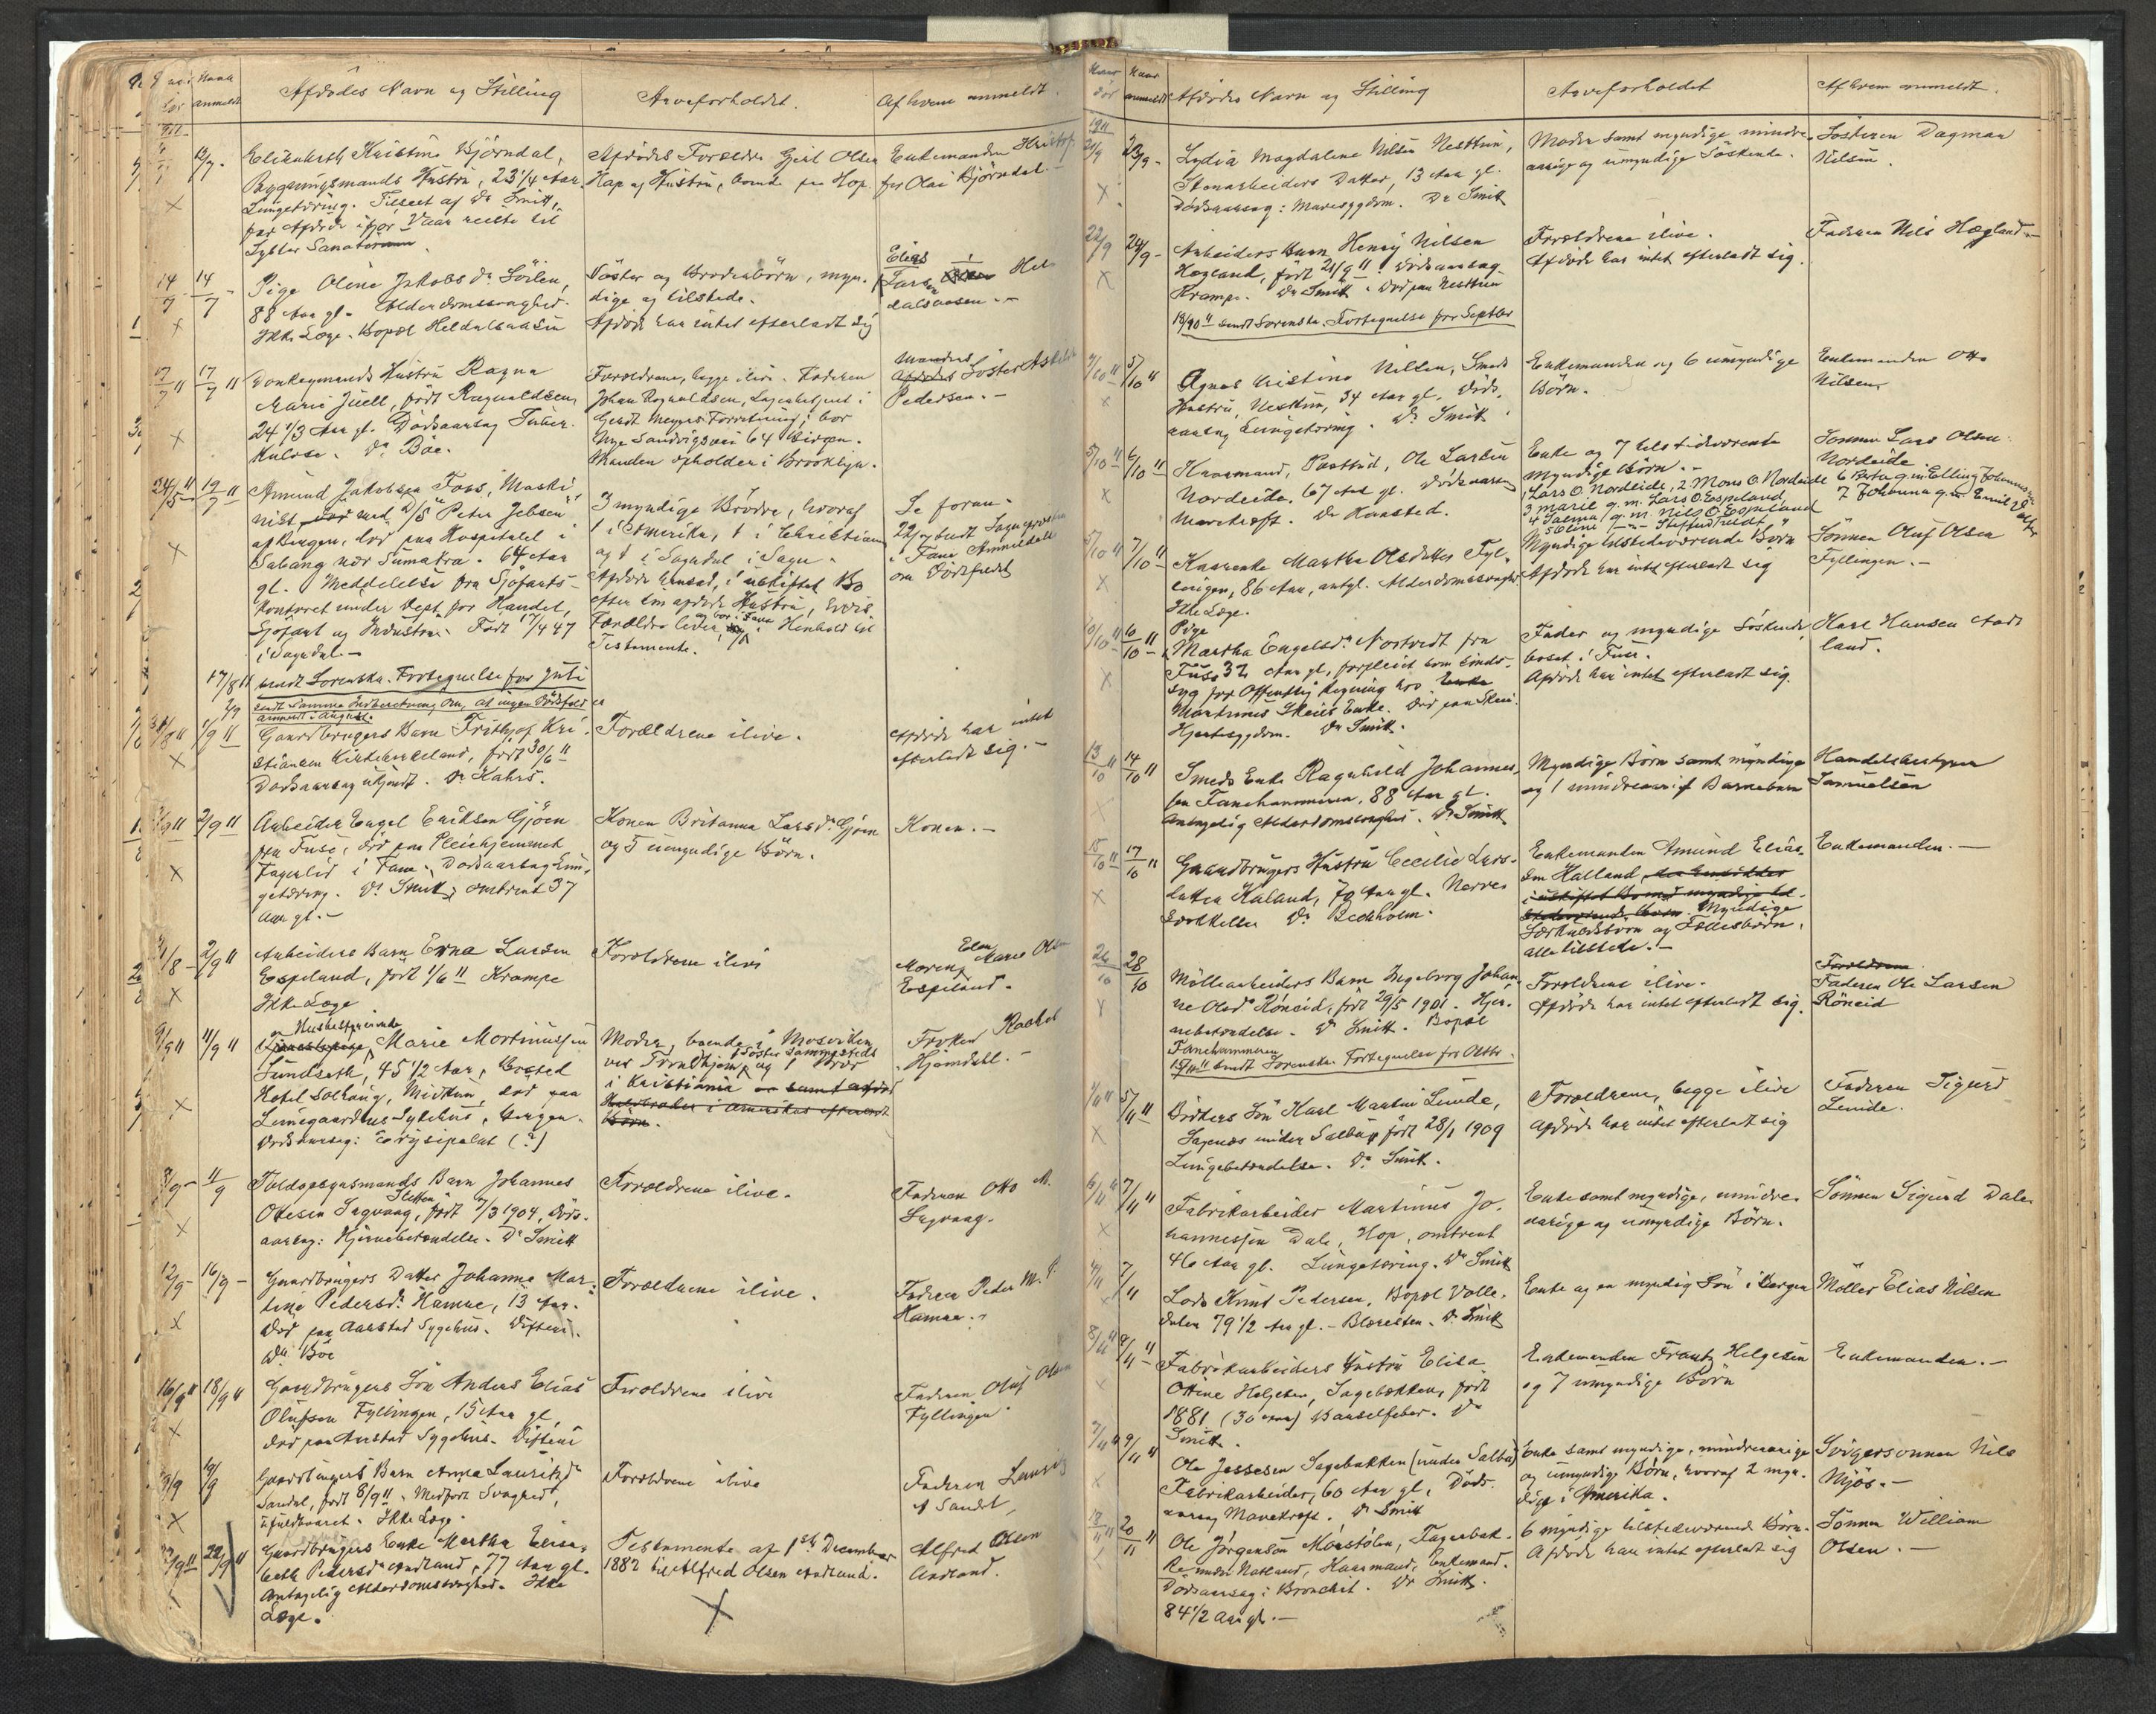 Naar anmeldt
Afdødes Navn og Stilling
Arveforholdet.
Af hvem anmeldt.
1911
13/7 -
Elisabeth Kristine Björndal,
Bygningsmands Hustru, 23 1/4 Aar.
Lungetæring. Tilseet af Dr Smitt,
før Afdøde ifjor Vaar reiste til
Lyster Sanatorium.
Afdødes Forældre Gjert Olsen
Hop og Hustru, boende paa Hop.
Enkemanden Kristof-
fer Olai Björndal. -
14/7 - 14/7 -
Pige Oline Jakobsdr Söilen,
88 Aar gl. Alderdomssvaghed.
Ikke Læge. Bopæl Heldalsaasen
Söster og Broderbörn, myn-
dige og tilstede.
Afdøde har intet efterladt sig
Elias
Larsen Hel-
dalsaasen. -
17/7 11 17/7 11
Donkeymands Hustru Ragna
Marie Juell, født Ragnvaldsen,
24 1/3 Aar gl. Dødsaarsag Tuber-
kulose. Dr Böe.
Forældrene, begge ilive. Faderen
Johan Ragnvaldsen, Lagerbetjent i
Gerdt Meyers Forretning; bor
Nye Sandvigsvei 64 Bergen.
Manden opholder i Brooklyn.
Mandens
Afdødes Söster
Pedersen. -
24/5 11 19/7 11
Amund Jakobsen Foss, Maski-
nist med D/S Peter Jebsen
af Bergen, død paa Hospitalet i
Sabang nær Sumatra. 64 Aar
gl. Meddelelse fra Sjöfarts-
kontoret under Dept. for Handel,
Sjöfart og Industri. Født 17/4 47
i Sogndal. -
3 myndige Brödre, hvoraf
1 i Amerika, 1 i Christiania
og 1 i Sogndal i Sogn.
Afdøde hensad i uskiftet Bo
efter sin afdøde Hustru, hvis
Forældre lever og bor i Fana. Henhold til
Testamente.
Se foran.
22/7 sendt Sogneprest
i Fana Anmeldelse
om Dödsfaldet
17/8 11 sendt Sorenskr. Fortegnelse for Juli
2/9 sendt samme Indberetning om, at ingen Dödsfald er
anmeldt i August.
31/8 11 1/9 11
Gaardbrugers Barn Frithjof Kri-
stiansen Kirkebirkeland, født 30/6 11
Dødsaarsag ukjendt. Dr Kahrs.
Forældrene ilive.
Afdøde har intet
efterladt sig. -
1/9 11 2/9 11
Arbeider Engel Eriksen Gjöen
fra Fuse, död paa Pleiehjemmet
Fagerlid i Fana. Dødsaarsag Lun-
getæring. Dr Smitt; omtrent 37
Aar gl. -
Konen Britanna Larsdr Gjöen
og 5 umyndige Börn.
Konen. -
31/8 - 2/9 11
Arbeiders Barn Erna Larsen
Espeland, født 1/6 11 Krampe
Ikke Læge
Forældrene ilive
Moren, Elen Marie Olsen
Espeland.
9/9 11 11/9 11
Husbestyrerinde
Marie Mortinussen
Sundseth, 45 1/2 Aar, Bosted
Hotel Solhaug, Midtun, död paa
Lungegaardens Sykehus, Bergen.
Dødsaarsag: Erysipelas (?)
Moder, boende i Mosviken
ved Trondhjem, 1 Söster sammesteds og 1 Bror
i Kristiania er samt afdød
Halvbroder i Amerikas efterladt
Börn.
Fröken Rachel
Hjömdahl. -
8/9 - 11/9
Toldopsynsmands Barn Johannes
Sletten
Ottesen Sagvaag, født 7/3 1904, Døds-
aarsag: Hjernebetændelse. Dr Smitt
Forældrene ilive.
Faderen Otto M.
Sagvaag.
12/9 - 16/9 -
Gaardbrugers Datter Johanne Mar-
tine Pedersdr Hamre, 13 Aar.
Død paa Aarstad Sygehus. Difteri.
Dr Böe
Forældrene ilive.
Faderen Peder M. P.
Hamre. -
16/9 11 18/9 11
Gaardbrugers Sön Anders Elias
Olufsen Fyllingen, 15 Aar gl.
död paa Aarstad Sygehus. Difteri
Forældrene ilive
Faderen Oluf Olsen
Fyllingen.
9/9 19/9
Gaardbrugers Barn Anna Lauritzdr
Sandal, født 8/9 11. Medfødt Svaghed,
ufuldbaaret. Ikke Læge.
Forældrene ilive
Faderen Laurits
A Sandal,
22/9 11 22/9 11
Gaardbrugers Enke Martha Elisa-
beth Pedersdr Aadland, 77 Aar gl.
Antagelig Alderdomssvaghed. Ikke
Læge.
Testamente af 1ste December
1882 til Alfred Olsen Aadland.
Alfred Olsen
Aadland.
Naar dør
Naar anmeldt
Afdødes Navn og Stilling
Arveforholdet
Af hvem anmeldt.
1911
21/9 23/9 -
Lydia Magdalene Nilsen Nesttun,
Stenarbeiders Datter, 13 Aar gl.
Dødsaarsag: Mavesygdom. Dr Smitt
Moder samt myndige mindre-
aarige og umyndige Söskende.
Søsteren Dagmar
Nilsen.
22/9 24/9 -
Arbeiders Barn Henry Nilsen
Hægland, født 21/9 11. Dødsaarsag
Krampe. Dr Smitt. Død paa Nesttun
18/10 11 sendt Sorenskr. Fortegnelse for Septbr
Forældrene ilive.
Afdøde har intet efterladt sig.
Faderen Nils Hægland. -
4/10 11 5/10 11
Agnes Kristine Nilsen, Smeds
Hustru, Nesttun, 34 Aar gl. Døds-
aarsag Lungetæring. Dr Smitt
Enkemanden og 6 umyndige
Börn.
Enkemanden Otto
Nilsen.
5/10 11 6/10 11
Kaarmand, Postbud, Ole Larsen
Nordeide, 67 Aar gl. Dødsaarsag
Mavekræft. Dr Kaarsted.
Enke og 7 tilstedeværende
Myndige Börn. -
1 Lars O. Nordeide, 2 Mons O. Nordeide 6 Berta g.m. Elling Johannessen
3 Marie g.m. Lars O. Espeland, 7 Johanna g.m. Emil
4 Salmna g.m. Nils O. Espeland
5 Eline
Sønnen Lars Olsen
Nordeide
5/10 11 7/10 11
Kaarenke Martha Olsdatter Fyl-
lingen, 86 Aar, antgl. Alderdomssvaghed
Ikke Læge.
Myndige tilstedeværende Børn
Afdøde har intet efterladt sig
Sønnen Oluf Olsen
Fyllingen. -
6/10 11 6/10 11
Pige
Martha Engelsdr Nortvedt fra
Fuse 32 Aar gl, forpleiet som sinds-
syg for Offentlig Regning hos
Martinus Skeies Enke. Død paa Skeie.
Hjertesygdom. Dr Smitt.
Fader og myndige Søskende
bosat i Fuse.
Afdøde har intet efterladt sig.
Karl Hansen Aad-
land.
13/10 11 14/10 11
Smeds Enke Ragnhild Johannes-
sen Fanehammeren, 88 Aar gl.
Antagelig Alderdomssvaghed. Dr Smitt
Myndige Börn samt myndige
og 1 mindreaarig Barnebarn
Handelsbestyrer
Samuelsen
15/10 11 17/10 11
Gaardbrugers Hustru Cecilie Lars-
datter Haland, 70 Aar gl. Nerve-
svækkelse Dr Beckholm.
Enkemanden Amund Elias-
sen Halland
Myndige
Særkuldsbörn og Fællesbörn,
alle tilstede. -
Enkemanden. -
26/10 28/10
Mölleearbeiders Barn Ingeborg Johan-
ne Olsdr Röneid, født 29/5 1901. Hjer-
nebetændelse. Dr Smitt. Bopæl
Fanehammeren
15/11 11 sendt Sorenskr. Fortegnelse for Oktbr.
Forældrene ilive.
Afdøde har intet efterladt sig.
Forældrene
Faderen Ole Larsen
Röneid
4/11 11 5/11 11
Bödkers Sön Karl Martin Lunde,
Sagenes under Salbu, født 28/1 1909
Lungebetændelse. Dr Smitt.
Forældrene, begge ilive
Afdøde har intet efterlat sig
Faderen Sigurd
Lunde.
6/11 11 7/11 11
Fabrikarbeider Martinus Jo-
hannessen Dale, Hop, omtrent
46 Aar gl. Lungetæring. Dr Smitt
Enke samt myndige, mindre-
aarige og umyndige Börn.
Sönnen Sigurd Dale
4/11 7/11
Lods Knut Pedersen, Bopæl Volle-
dalen 79 1/2 Aar gl. - Blæresten. Dr Smitt
Enke og en myndig Sön i Bergen
Möller Elias Nilsen
8/11 11 9/11 11
Fabrikarbeiders Hustru Elisa
Ottine Helgesen, Sagebækken, født
1881 (30 Aar) Barselfeber. Dr
Smitt.
Enkemanden Frantz Helgesen
og 7 umyndige Børn
Enkemanden. -
7/11 11 9/11 11
Ole Jessesen Sagebakken (under Salbu)
Fabrikarbeider, 60 Aar gl, Døds-
aarsag Mavekræft. Dr Smitt
Enke samt myndige, mindreaarige
og umyndige Börn, hvoraf 2 myn-
dige i Amerika.
Svigersønnen Nils
Mjös. -
18/11 11 20/11 11
Ole Jörgenson Mørstölen, Fagerbak-
ke under Natland, Kaarmand, Enkemand.
Dødsaarsag: Bronchit. Dr Smitt.
84 1/2 Aar gl. -
6 myndige tilstedeværende Børn.
Afdøde have intet efterladt sig
Sønnen William
Olsen. -